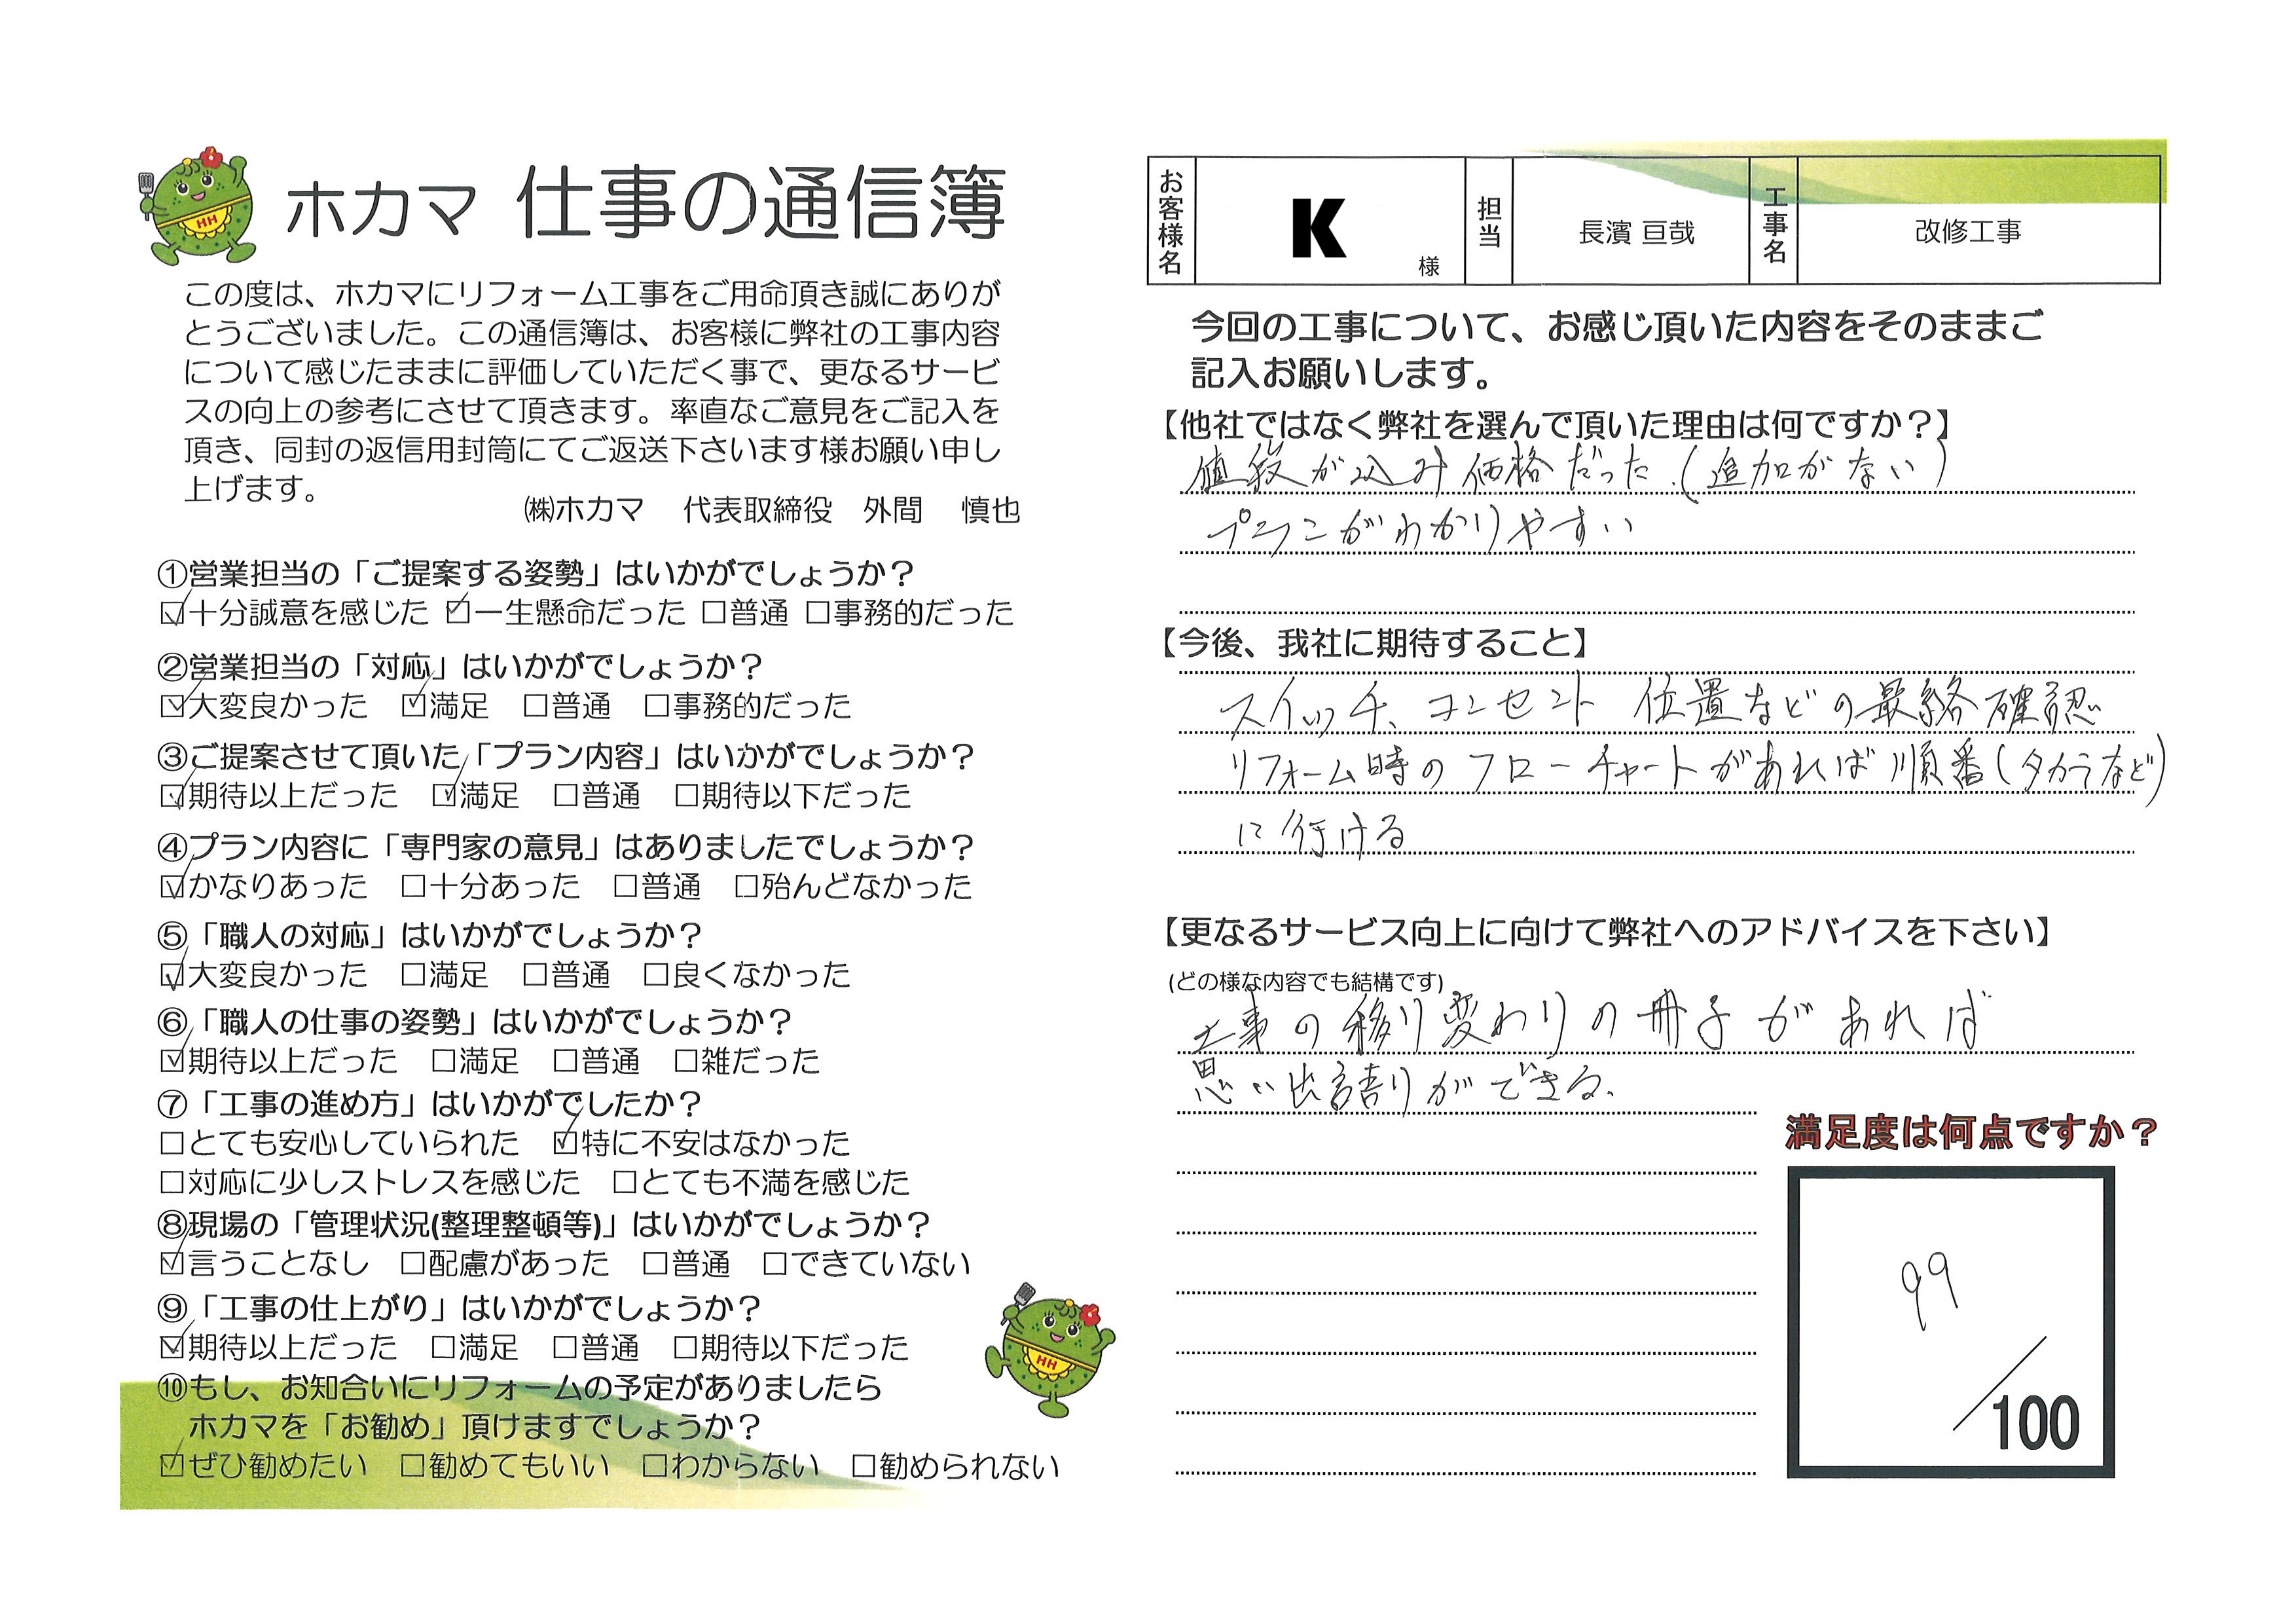 ホカマ 仕事の通信簿
この度は、ホカマにリフォーム工事をご用命頂き誠にありが
とうございました。この通信簿は、お客様に弊社の工事内容
について感じたままに評価していただく事で、更なるサービ
スの向上の参考にさせて頂きます。率直なご意見をご記入を
頂き、同封の返信用封筒にてご返送下さいます様お願い申し
上げます。
㈱ホカマ 代表取締役 外間 慎也
①営業担当の「ご提案する姿勢」はいかがでしょうか？
☑十分誠意を感じた ☑一生懸命だった □普通 □事務的だった
②営業担当の「対応」はいかがでしょうか？
☑大変良かった ☑満足 □普通 □事務的だった
③ご提案させて頂いた「プラン内容」はいかがでしょうか？
☑期待以上だった ☑満足 □普通 □期待以下だった
④プラン内容に「専門家の意見」はありましたでしょうか？
☑かなりあった □十分あった □普通 □殆んどなかった
⑤「職人の対応」はいかがでしょうか？
☑大変良かった □満足 □普通 □良くなかった
⑥「職人の仕事の姿勢」はいかがでしょうか？
☑期待以上だった □満足 □普通 □雑だった
⑦「工事の進め方」はいかがでしたか？
□とても安心していられた ☑特に不安はなかった
□対応に少しストレスを感じた □とても不満を感じた
⑧現場の「管理状況(整理整頓等)」はいかがでしょうか？
☑言うことなし □配慮があった □普通 □できていない
⑨「工事の仕上がり」はいかがでしょうか？
☑期待以上だった □満足 □普通 □期待以下だった
⑩もし、お知合いにリフォームの予定がありましたら
ホカマを「お勧め」頂けますでしょうか？
☑ぜひ勧めたい □勧めてもいい □わからない □勧められない
HH
HH
お客様名 K 様 担当 長濱 亘哉 工事名 改修工事
今回の工事について、お感じ頂いた内容をそのままご
記入お願いします。
【他社ではなく弊社を選んで頂いた理由は何ですか？】
値段が込み価格だった.(追加がない)
プランがわかりやすい
【今後、我社に期待すること】
スイッチ、コンセント 位置などの最終確認
リフォーム時のフローチャートがあれば順番(タカラなど)
に行ける
【更なるサービス向上に向けて弊社へのアドバイスを下さい】
(どの様な内容でも結構です)
工事の移り変わりの冊子があれば
思い出語りができる.
満足度は何点ですか？
99
/100